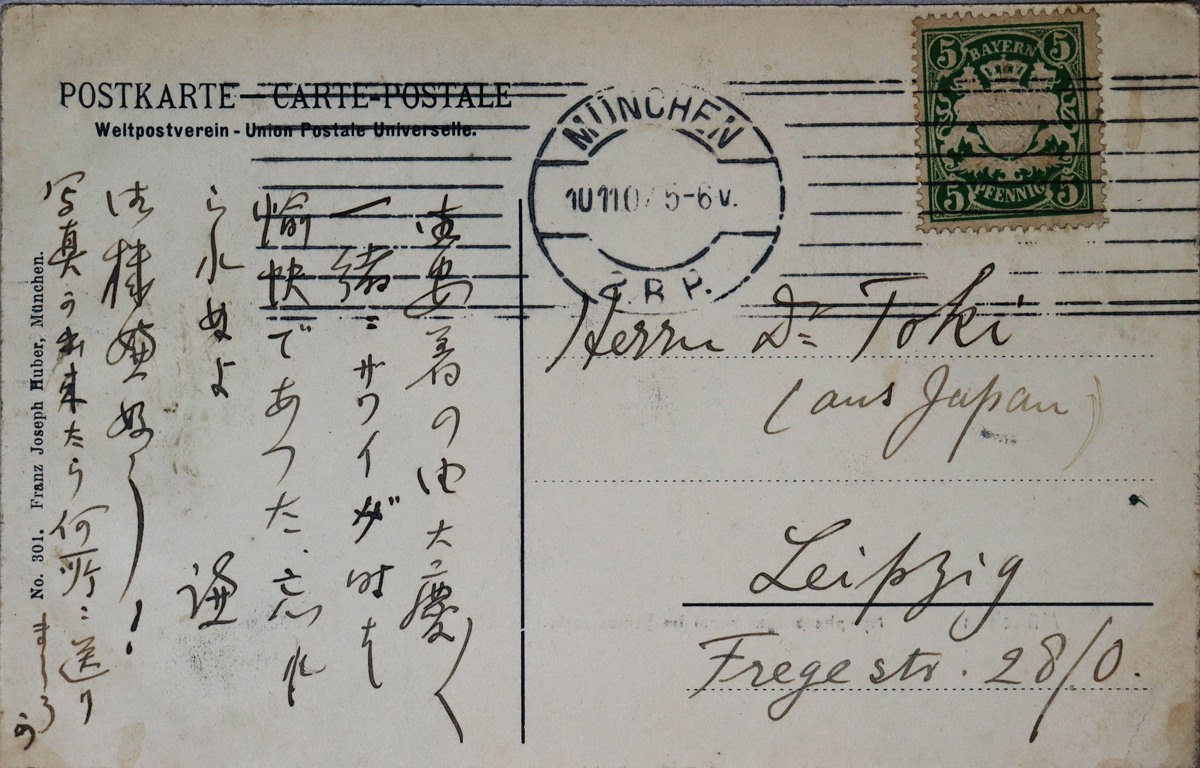 POSTKARTE — CARTE-POSTALE
Weltpostverein - Union Postale Universelle.
MÜNCHEN
5-6 V.
B. P.
5 BAYERN 5
5 PFENNIG 5
No. 301. Franz Joseph Huber, München.
安着の由大慶〱
一緒ニサワイダ時も
愉快であつた、忘れ
られぬよ
謙
御機嫌好〱!
写真が出来たら何所ニ送り
Herrn Dr Toki
(aus Japan)
Leipzig
Fregestr. 28/0.